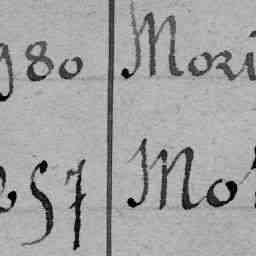 980 Mori
257 Mo